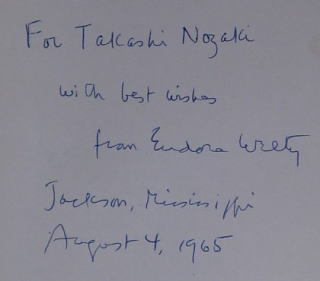 For Takashi Nozaki
with best wishes
from Eudora Welty
Jackson, Mississippi
August 4, 1965